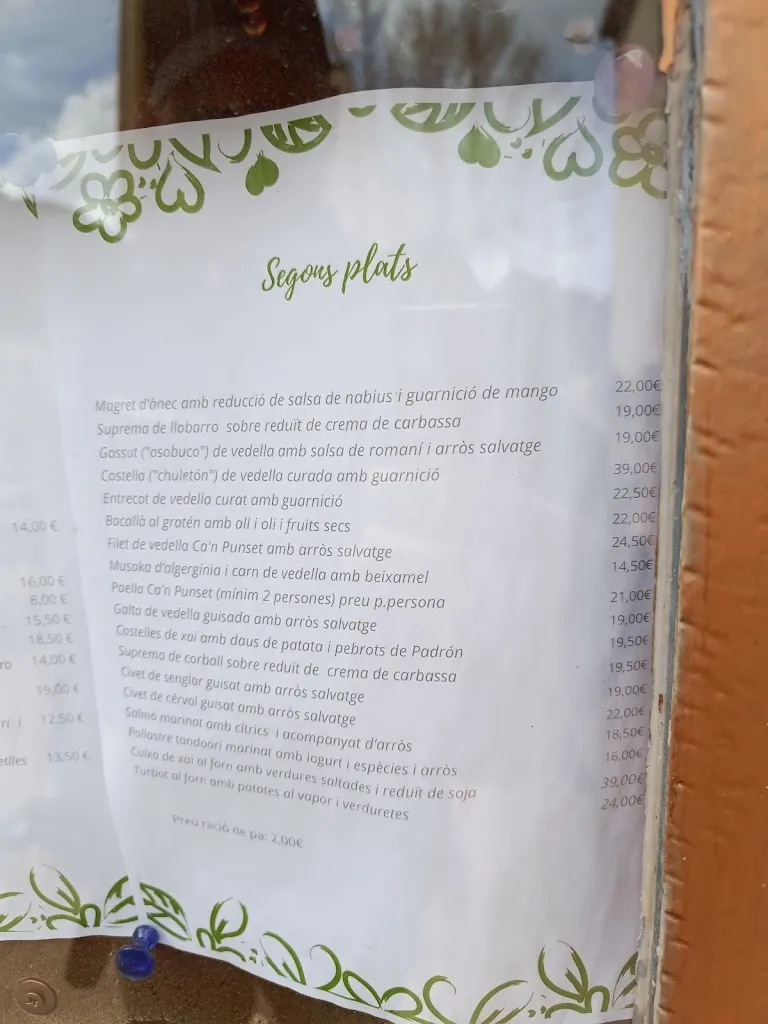 Segons plats
Magret d'ànec amb reducció de salsa de nabius i guarnició de mango 22,00€
Suprema de llobarro sobre reduït de crema de carbassa 19,00€
Gossut ("osobuco") de vedella amb salsa de romaní i arròs salvatge 19,00€
Costella ("chuletón") de vedella curada amb guarnició 39,00€
Entrecot de vedella curat amb guarnició 22,50€
Bacallà al gratén amb all i oli i fruits secs 22,00€
Filet de vedella Ca'n Punset amb arròs salvatge 24,50€
Musaka d'algergínia i carn de vedella amb beixamel 14,50€
Paella Ca'n Punset (mínim 2 persones) preu p.persona 21,00€
Galta de vedella guisada amb arròs salvatge 19,00€
Costelles de xai amb daus de patata i pebrots de Padrón 19,50€
Suprema de corball sobre reduït de crema de carbassa 19,50€
Civet de senglar guisat amb arròs salvatge 19,00€
Civet de cérvol guisat amb arròs salvatge 22,00€
Salmó marinat amb cítrics i acompanyat d'arròs 18,50€
Pollastre tandoori marinat amb iogurt i espècies i arròs 16,00€
Cuixa de xai al forn amb verdures saltades i reduït de soja 39,00€
Turbot al forn amb patates al vapor i verduretes 24,00€
Preu ració de pa: 2,00€
14,00 €
16,00 €
8,00 €
15,50 €
18,50 €
ro 14,00 €
19,00 €
rri i 12,50 €
etlles 13,50 €